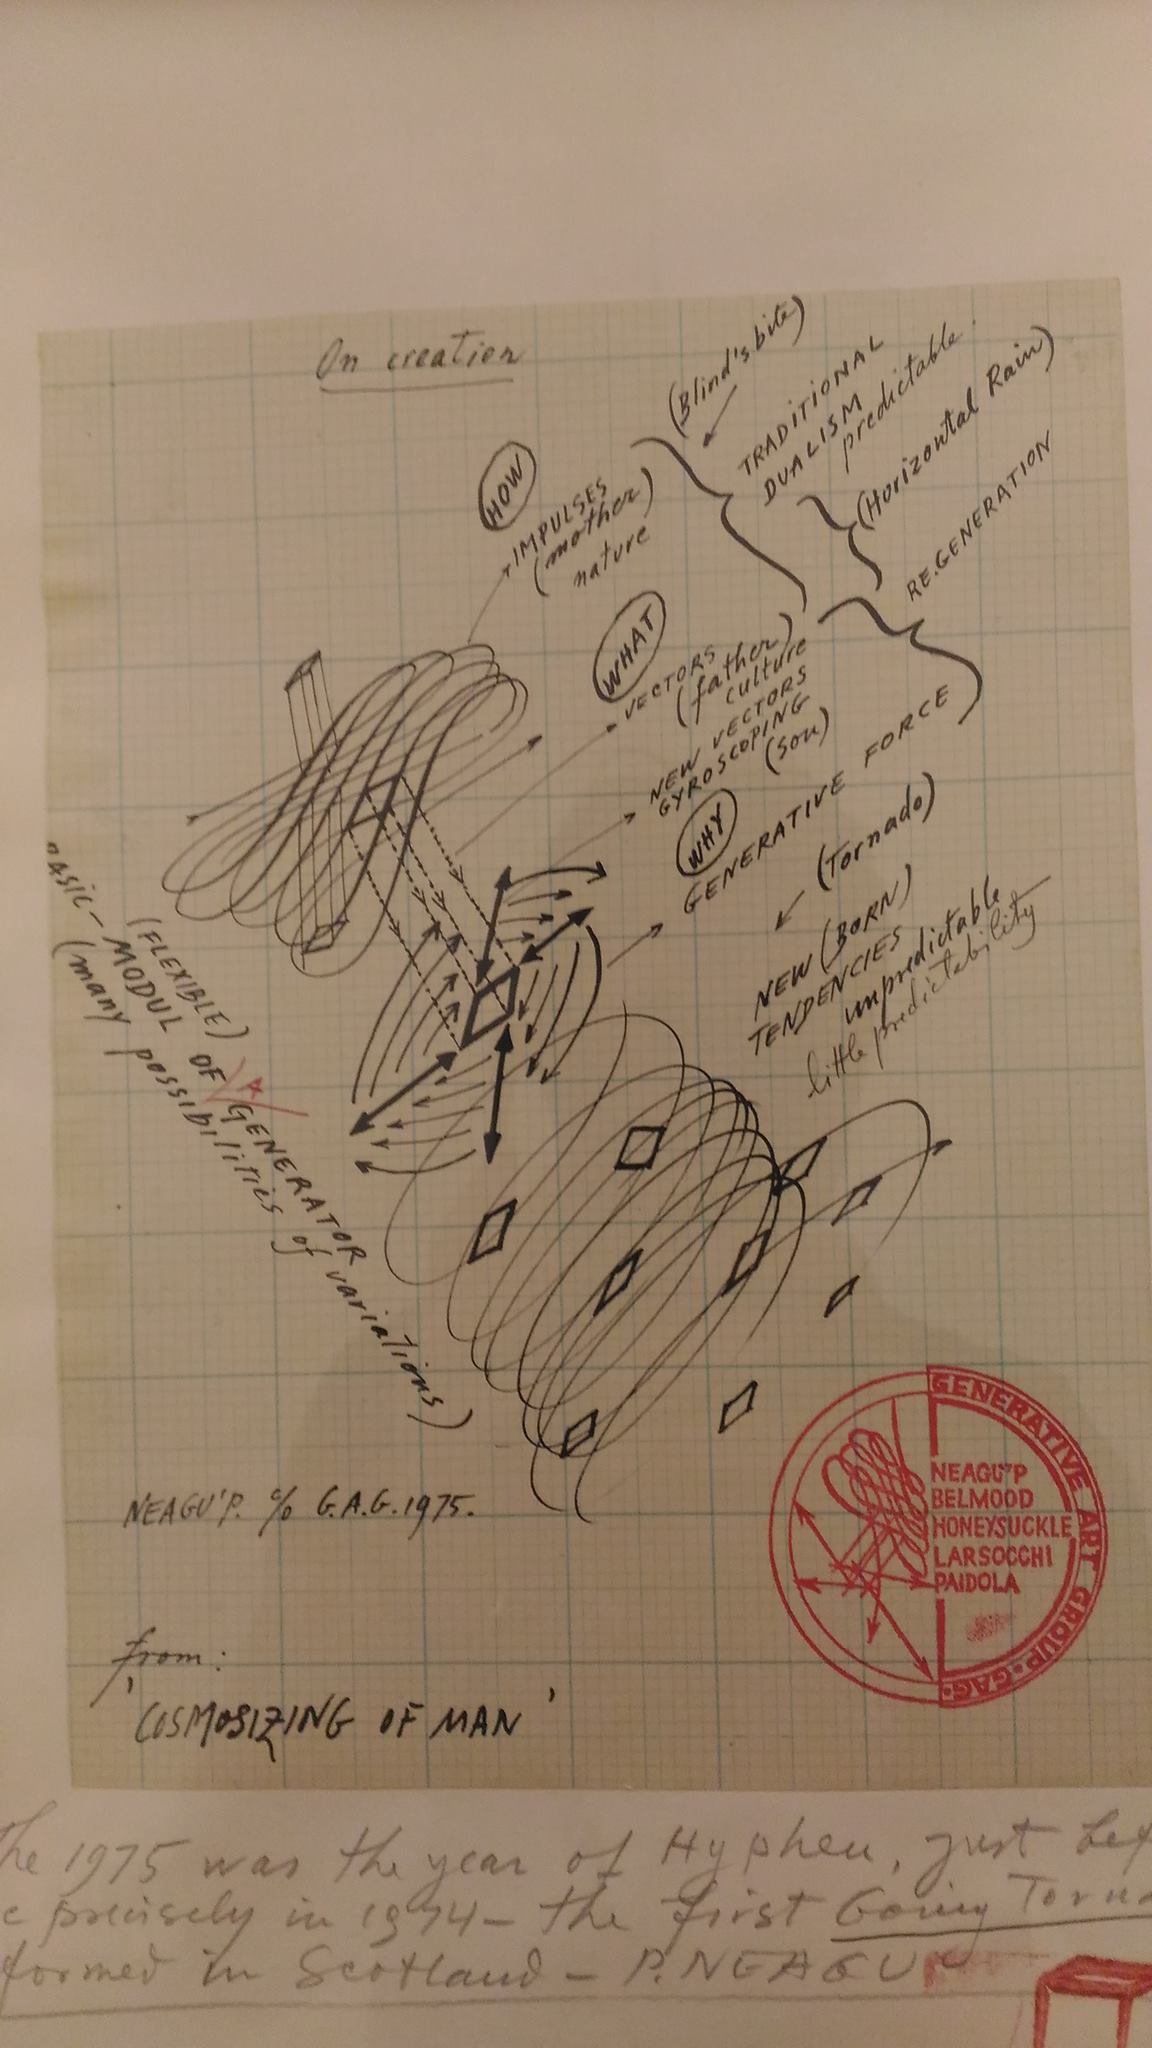 On creation
(Blind's bite)
TRADITIONAL
DUALISM
predictable.
(Horizontal Rain)
RE.GENERATION
HOW
IMPULSES
(mother)
nature
WHAT
VECTORS
(father)
culture
NEW VECTORS
GYROSCOPING
(son)
WHY
GENERATIVE FORCE
(Tornado)
NEW (BORN)
TENDENCIES
unpredictable
little predictability
(FLEXIBLE)
BASIC-MODUL OF A GENERATOR
(many possibilities of variations)
NEAGU'P. % G.A.G. 1975.
from:
'COSMOSIZING OF MAN'
GENERATIVE ART GROUP·GAG·
NEAGU'P
BELMOOD
HONEYSUCKLE
LARSOCCHI
PAIDOLA
he 1975 was the year of Hyphen, just bef
e precisely in 1974 - the first Going Torna
formed in Scotland - P. NEAGU